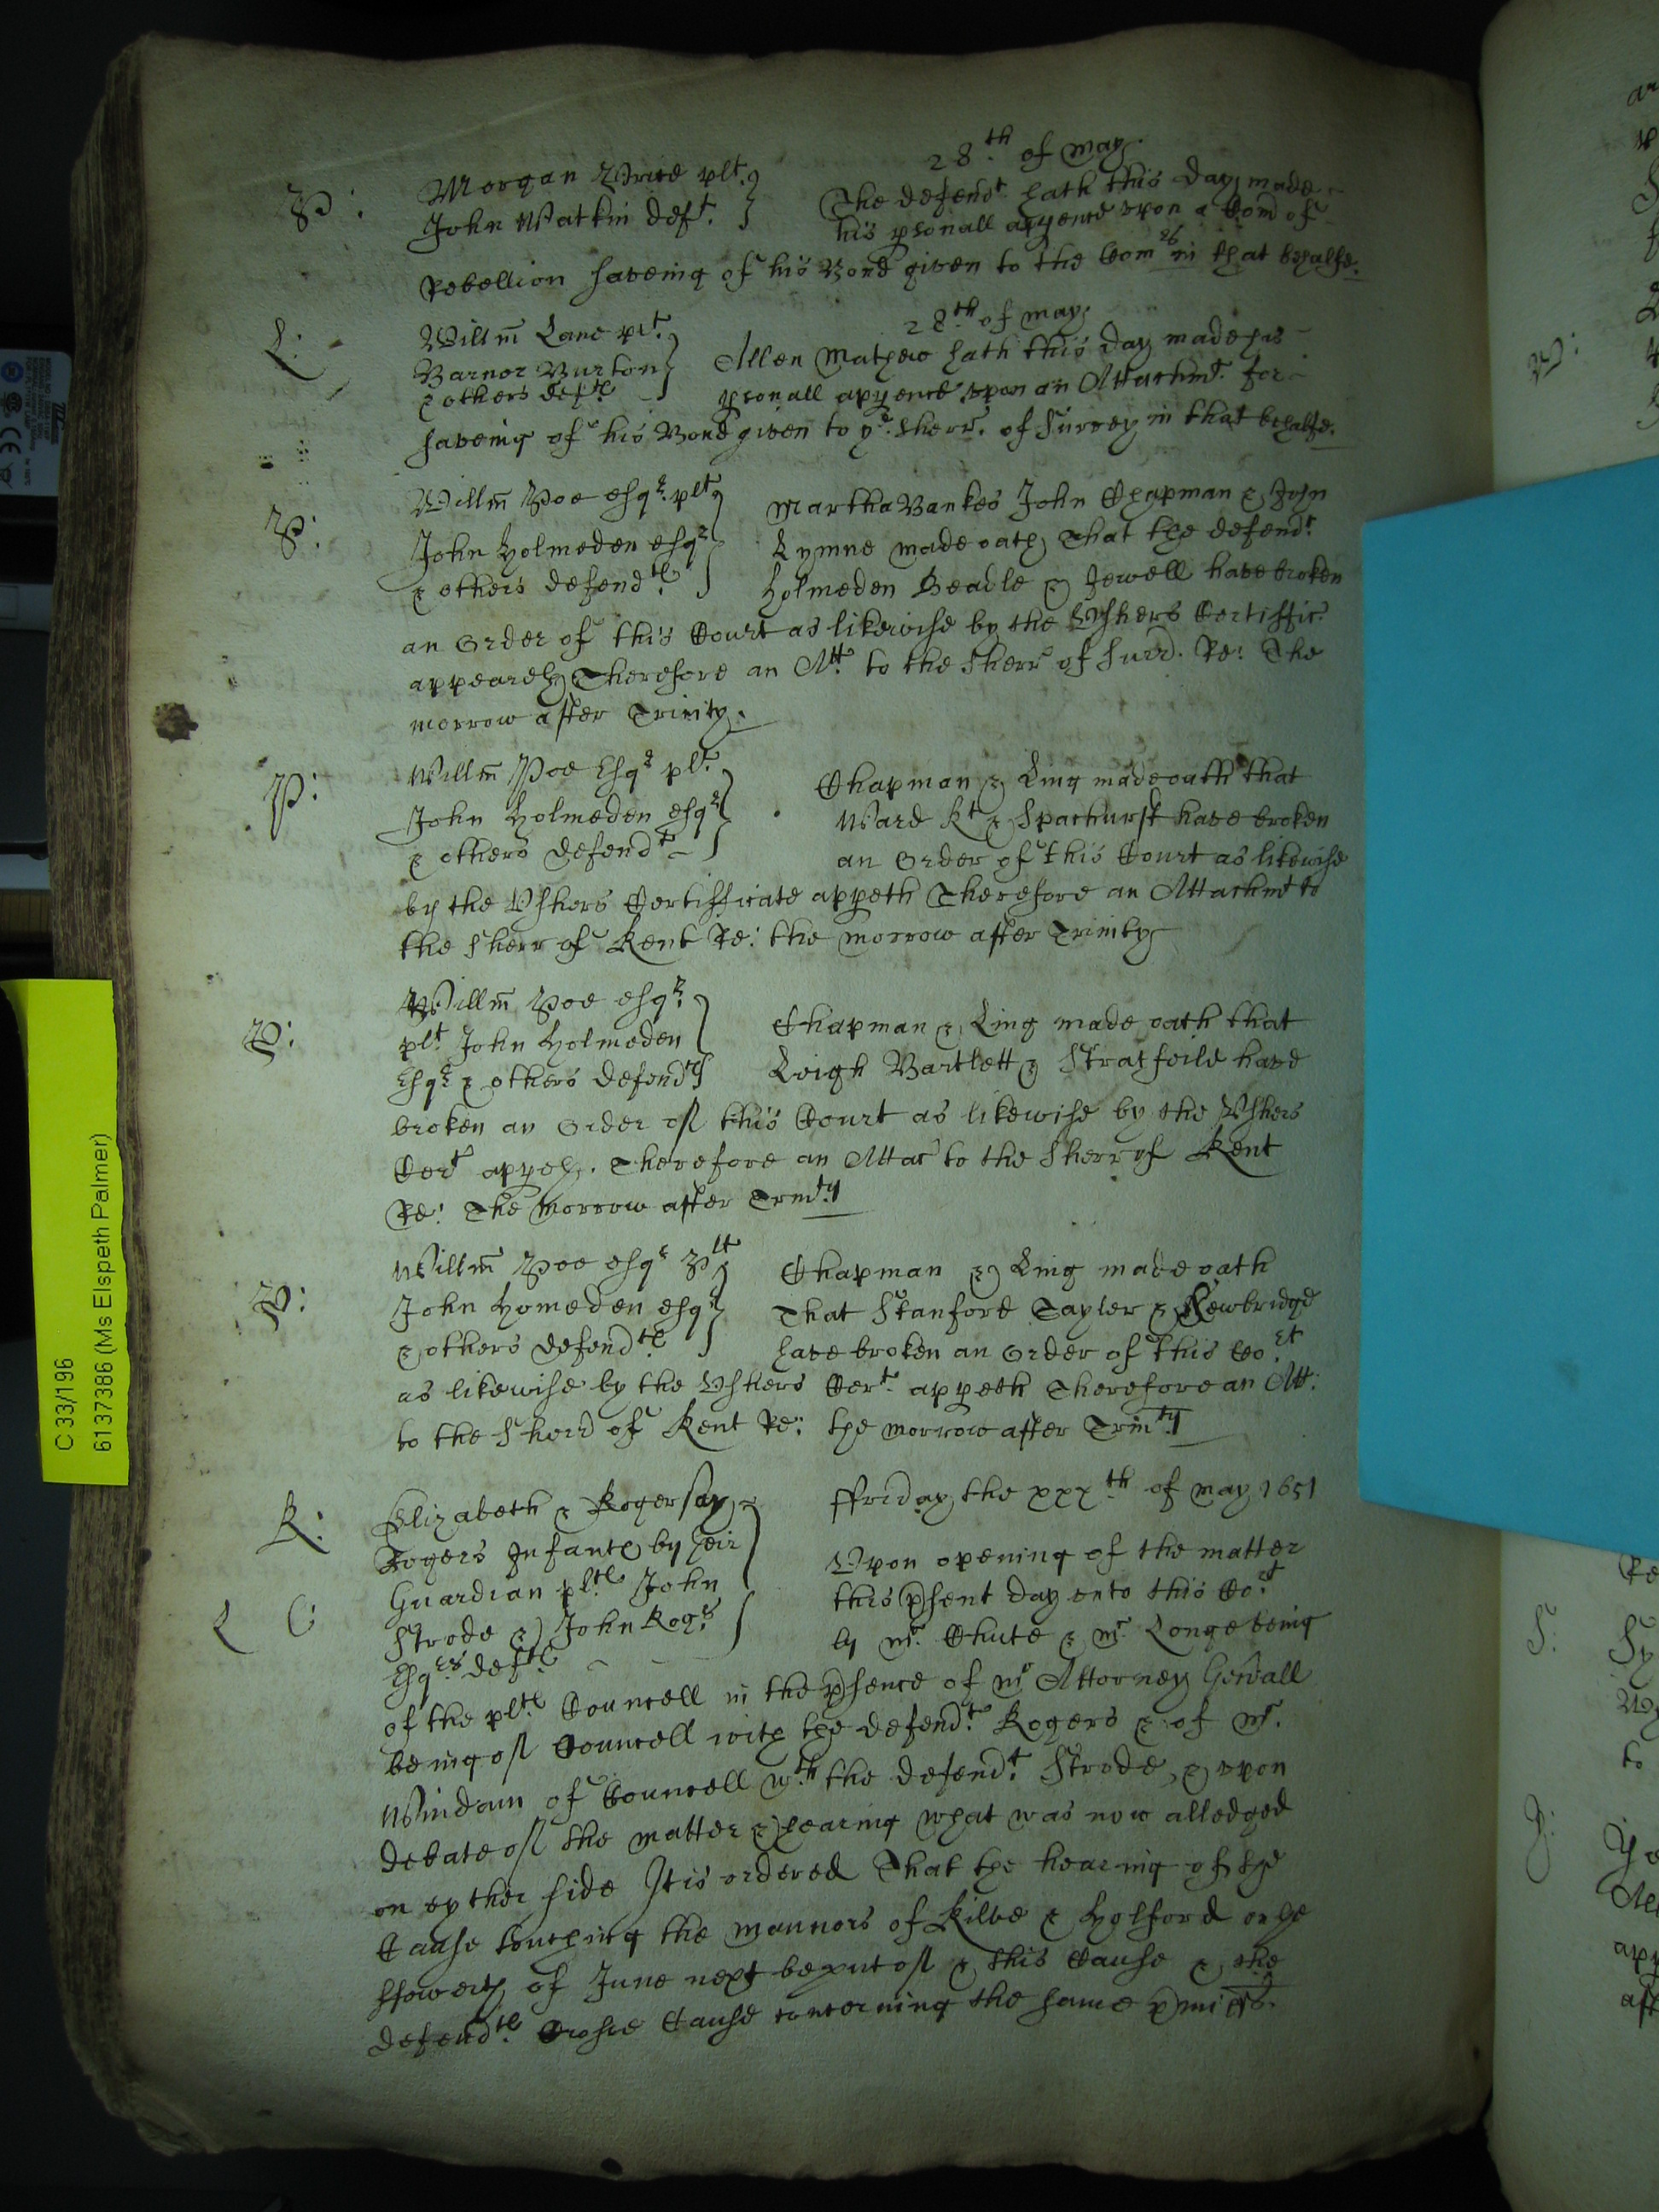 28.th of may.
P: Morgan Price plt.
John Watkin deft.
The defendt hath this day made
his psonall appence upon a Com of
Rebellion saveing of his Bond given to the Comrs in that behalfe.
28th of may
L: Willm Lane plt.
Barnor Burton
& others defts
Allen Mathew hath this day made his
psonall appence upon an Attachmt. for
saveing of his Bond given to ye. Sherr. of Surrey in that behalfe.
P: Willm Poe esqr. plt
John Holmeden esqr
& others defendts.
Martha Bankes John Chapman & John
Lymne made oath That the defendts
Holmeden Beadle & Jewell have broken
an Order of this Court as likewise by the Vshers Certiffic
appeareth Therefore an Att. to the Sherr of Surr. Re: The
morrow after Trinity.
P: Willm Poe Esqr plt.
John Holmeden esqr
& others defendts
Chapman & King made oath that
Ward Kt & Spachurst have broken
an Order of this Court as likewise
by the Vshers Certifficate appeth Therefore an Attachmt to
the Sherr of Kent Re: the morrow after Trinity
P: Willm Poe esqr.
plt. John Holmeden
Esqr & others defendts
Chapman & King made oath that
Leigh Bartlett & Stratfeild have
broken an Order of this Court as likewise by the Vshers
Cert appeth. Therefore an Attac to the Sherr of Kent
Re: The Morrow after Trinty
P: Willm Poe esqr Plt
John Homeden esqr
& others defendts.
Chapman & King made oath
That Stanford Sayler & Newbridge
have broken an Order of this Cort
as likewise by the Vshers Cert. appeth Therefore an Att:
to the Sherr of Kent Re: the morrow after Trinty
ffriday the xxxth. of May 1651
R: Elizabeth & Roger say
Rogers Infants by their
Guardian plts John
Strode & John Rogrs
Esqrs defts
Vpon opening of the matter
this psent day vnto this Cort
L C: by mr. Chute & mr. Longe being
of the plts. Councell in the psence of mr Attorney Gerall
being of Councell with the defendt. Rogers & of mr.
Windam of Councell wth the defendt. Strode, & vpon
debate of the matter & hearing what was now alledged
on eyther side It is ordered That the hearing of the
Cause touching the mannors of Kilve & Holford on the
ffowerth of June next be put of & this Cause & the
defendts. Crosse Cause concerning the same pmisses.
C 33/196
61737386 (Ms Elspeth Palmer)